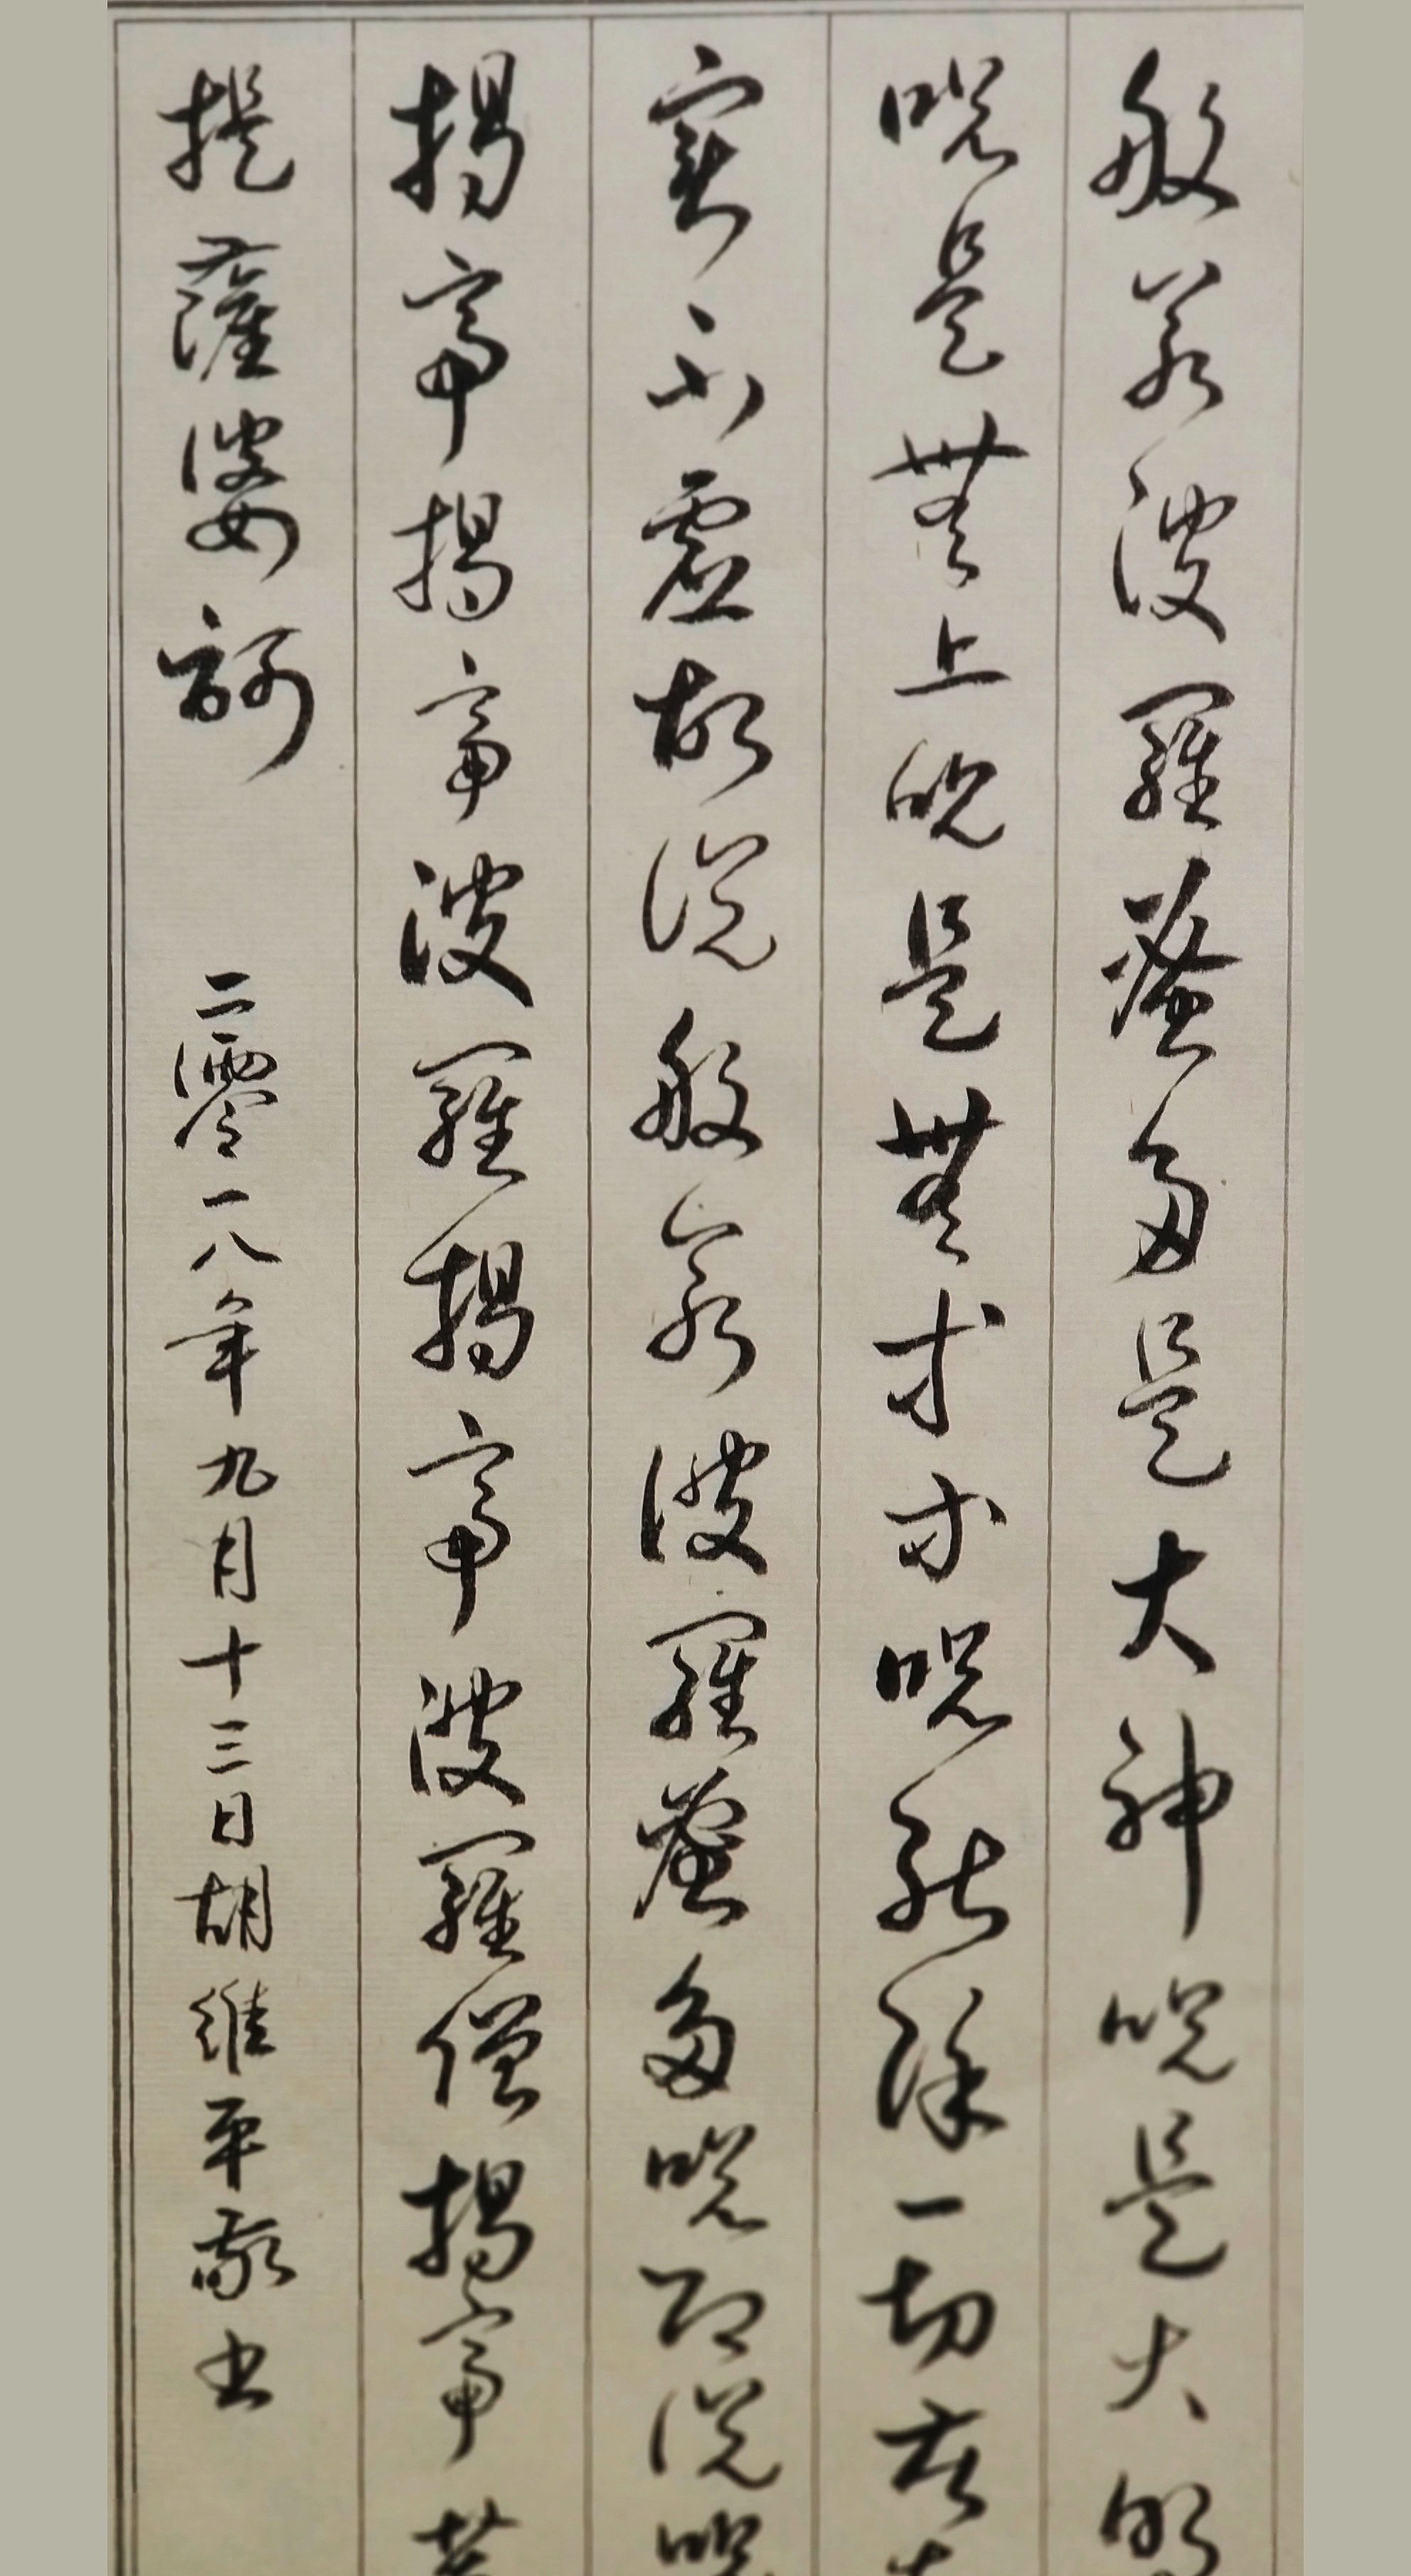 般若波羅蜜多是大神咒是大明
咒是無上咒是無等等咒能除一切苦
實不虛故說般若波羅蜜多咒即說咒
揭帝揭帝波羅揭帝波羅僧揭帝菩
提薩婆訶
二零一八年九月十三日胡維平敬书